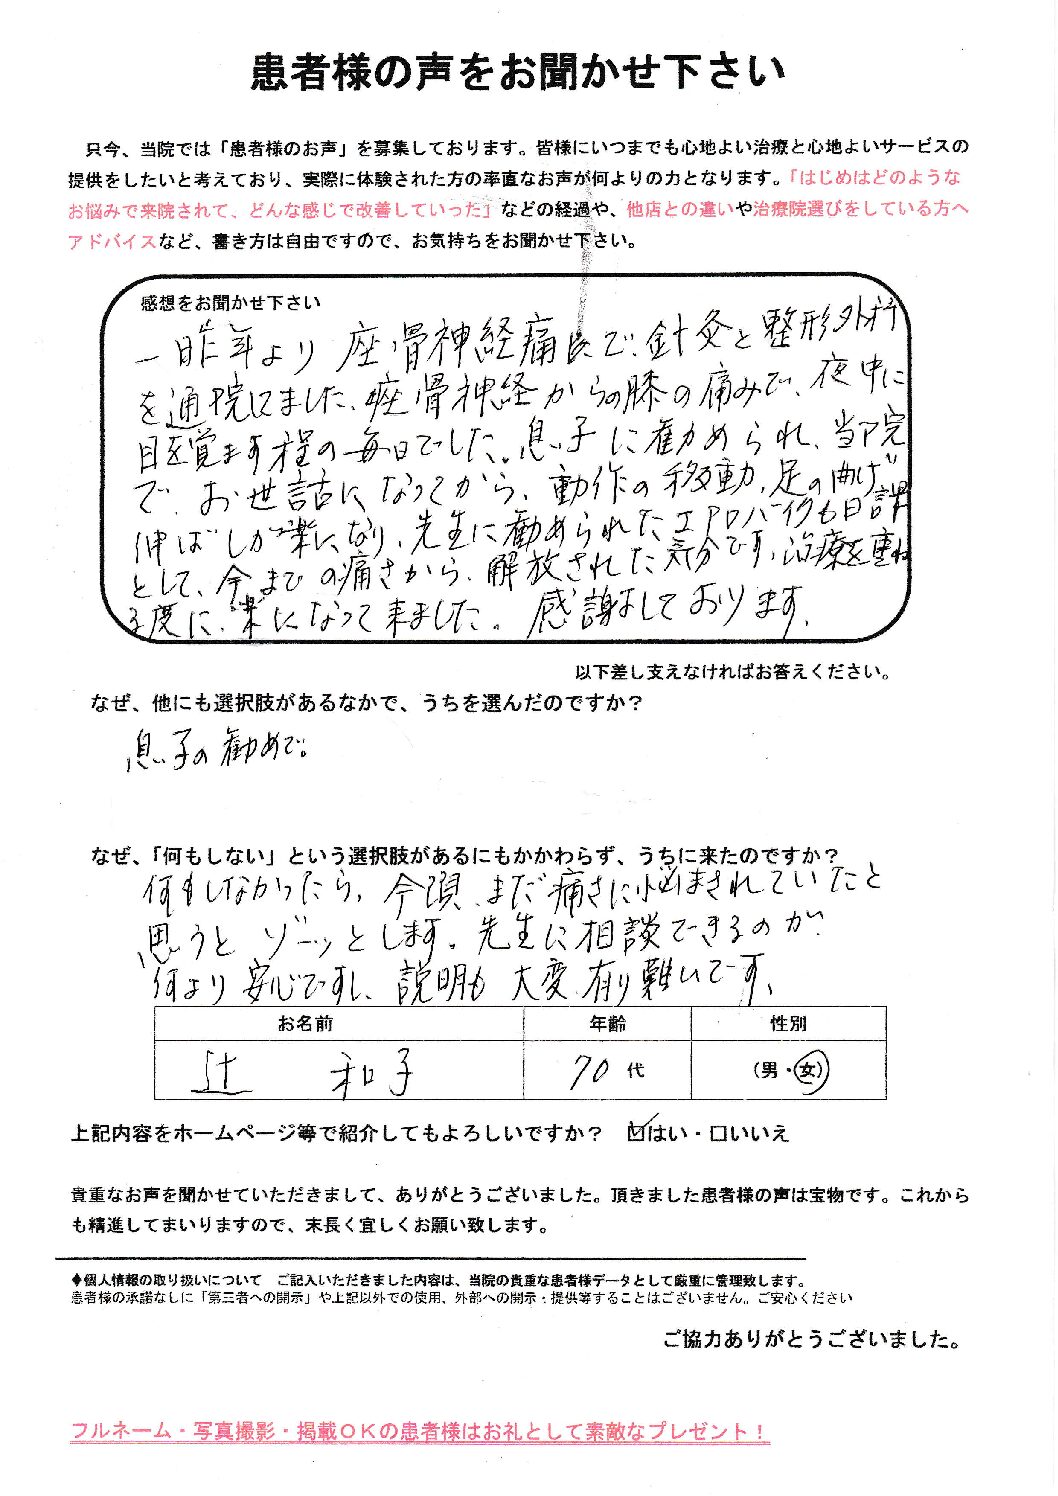 患者様の声をお聞かせ下さい
只今、当院では「患者様のお声」を募集しております。皆様にいつまでも心地よい治療と心地よいサービスの
提供をしたいと考えており、実際に体験された方の率直なお声が何よりの力となります。「はじめはどのような
お悩みで来院されて、どんな感じで改善していった」などの経過や、他店との違いや治療院選びをしている方へ
アドバイスなど、書き方は自由ですので、お気持ちをお聞かせ下さい。
感想をお聞かせ下さい
一昨年より 座骨神経痛で、針灸と整形外科
を通院しました、座骨神経からの膝の痛みで、夜中に
目を覚ます程の毎日でした。息子に勧められ、当院
で、お世話になってから、動作の移動、足の曲げ
伸ばしが楽になり、先生に勧められたエアロバイクも日課
として、今までの痛さから、解放された気分です、治療を重ね
る度に、楽になって来ました。感謝しております。
以下差し支えなければお答えください。
なぜ、他にも選択肢があるなかで、うちを選んだのですか？
息子の勧めで。
なぜ、「何もしない」という選択肢があるにもかかわらず、うちに来たのですか？
何もしなかったら、今頃、まだ痛さに悩まされていたと
思うと ゾーッとします。先生に相談できるのが、
何より安心ですし、説明も 大変、有り難いです、
お名前 年齢 性別
辻 和子 70 代 （男・女）
上記内容をホームページ等で紹介してもよろしいですか？ ☑はい・□いいえ
貴重なお声を聞かせていただきまして、ありがとうございました。頂きました患者様の声は宝物です。これから
も精進してまいりますので、末長く宜しくお願い致します。
◆個人情報の取り扱いについて ご記入いただきました内容は、当院の貴重な患者様データとして厳重に管理致します。
患者様の承諾なしに「第三者への開示」や上記以外での使用、外部への開示・提供等することはございません。ご安心ください
ご協力ありがとうございました。
フルネーム・写真撮影・掲載ＯＫの患者様はお礼として素敵なプレゼント！